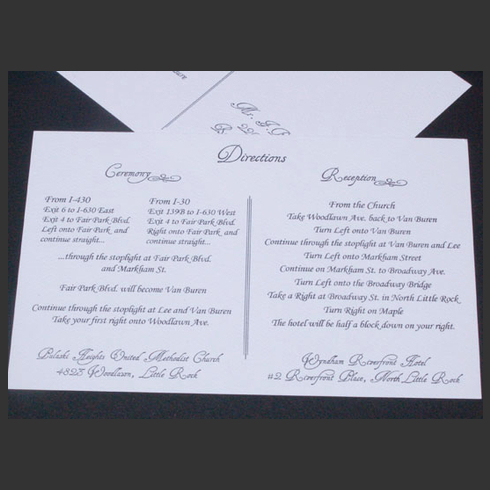 Directions
Ceremony
From I-430
Exit 6 to I-630 East
Exit 4 to Fair Park Blvd.
Left onto Fair Park and
continue straight...
From I-30
Exit 139B to I-630 West
Exit 4 to Fair Park Blvd.
Right onto Fair Park and
continue straight...
...through the stoplight at Fair Park Blvd.
and Markham St.
Fair Park Blvd. will become Van Buren
Continue through the stoplight at Lee and Van Buren
Take your first right onto Woodlawn Ave.
Pulaski Heights United Methodist Church
4823 Woodlawn, Little Rock
Reception
From the Church
Take Woodlawn Ave. back to Van Buren
Turn Left onto Van Buren
Continue through the stoplight at Van Buren and Lee
Turn Left onto Markham Street
Continue on Markham St. to Broadway Ave.
Turn Left onto the Broadway Bridge
Take a Right at Broadway St. in North Little Rock
Turn Right on Maple
The hotel will be half a block down on your right.
Wyndham Riverfront Hotel
#2 Riverfront Place, North Little Rock